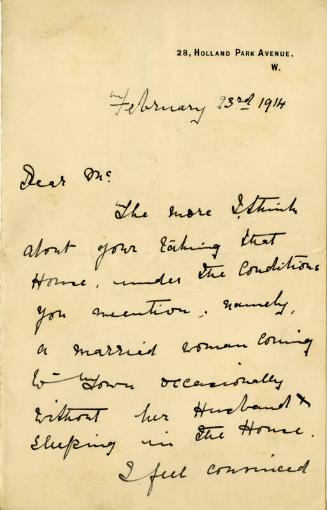 28, HOLLAND PARK AVENUE,
W.
February 23rd 1914
Dear Mc
The more I think
about your taking that
House, under the Conditions
you mention, namely,
a married woman coming
to Town occasionally
without her Husband &
sleeping in the House.
I feel convinced